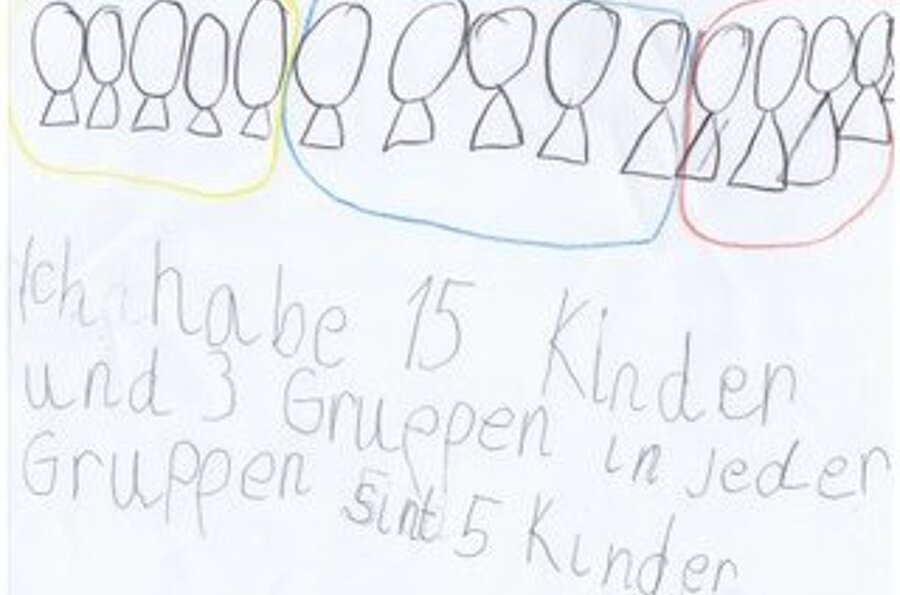 Ich habe 15 Kinder
und 3 Gruppen in jeder
Gruppen sint 5 Kinder